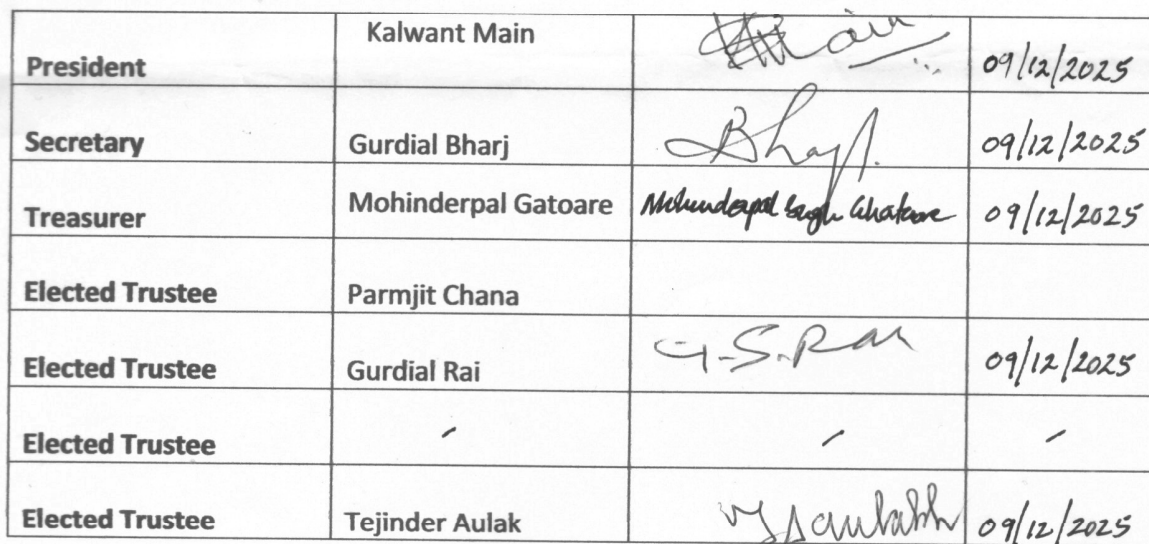 President Kalwant Main 09/12/2025
Secretary Gurdial Bharj Bharj. 09/12/2025
Treasurer Mohinderpal Gatoare Mohinderpal Singh Ghatoare 09/12/2025
Elected Trustee Parmjit Chana
Elected Trustee Gurdial Rai G.S.Rai 09/12/2025
Elected Trustee - - -
Elected Trustee Tejinder Aulak 09/12/2025